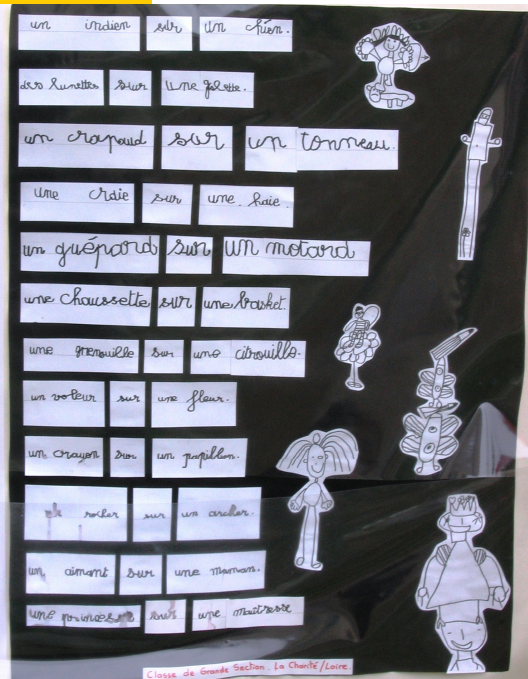 un indien sur un chien.
des lunettes sur une galette.
un crapaud sur un tonneau.
une craie sur une haie.
un guépard sur un motard
une chaussette sur une basket.
une grenouille sur une citrouille.
un voleur sur une fleur.
un crayon sur un papillon.
rocher sur un archer.
un aimant sur une maman.
une princesse sur une maîtresse
Classe de Grande Section. La Charité/Loire.